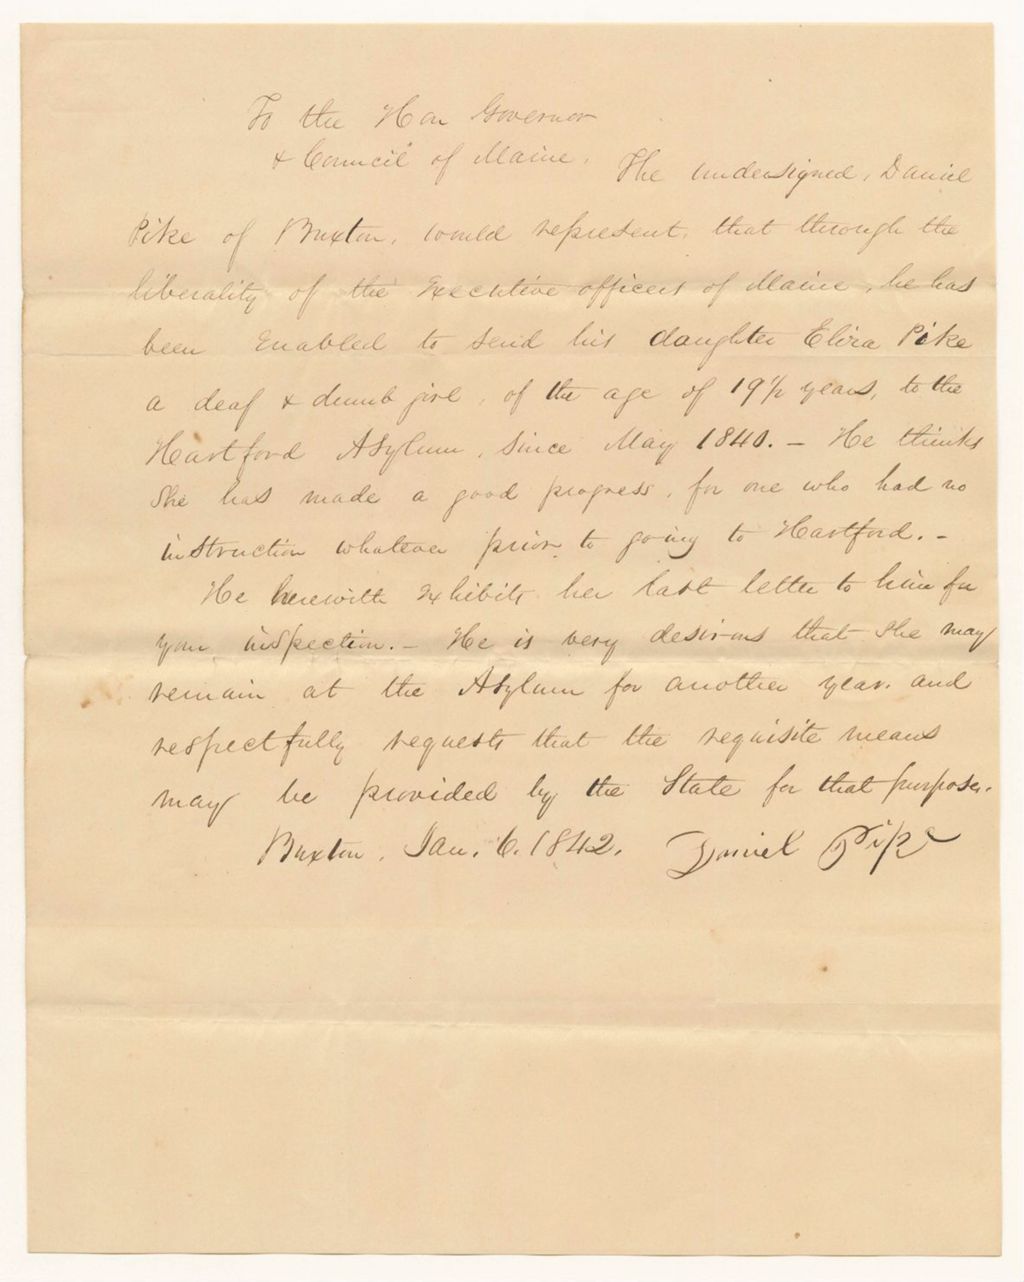 To the Hon Governor
& Council of Maine. The undersigned, Daniel
Pike of Buxton, would represent, that through the
liberality of the Executive officers of Maine, he has
been enabled to send his daughter Eliza Pike
a deaf & dumb girl, of the age of 19½ years, to the
Hartford Asylum, since May 1840. – He thinks
she has made a good progress, for one who had no
instruction whatever prior to going to Hartford. –
He herewith exhibits her last letter to him for
your inspection. – He is very desirous that she may
remain at the Asylum for another year, and
respectfully requests that the requisite means
may be provided by the State for that purpose.
Buxton, Jan. 6. 1842. Daniel Pike